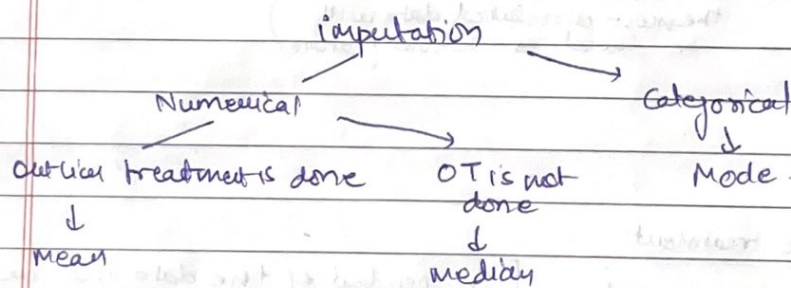 imputation
Numerical
Categorical
Outlier treatment is done
OT is not
done
Mode
Mean
median